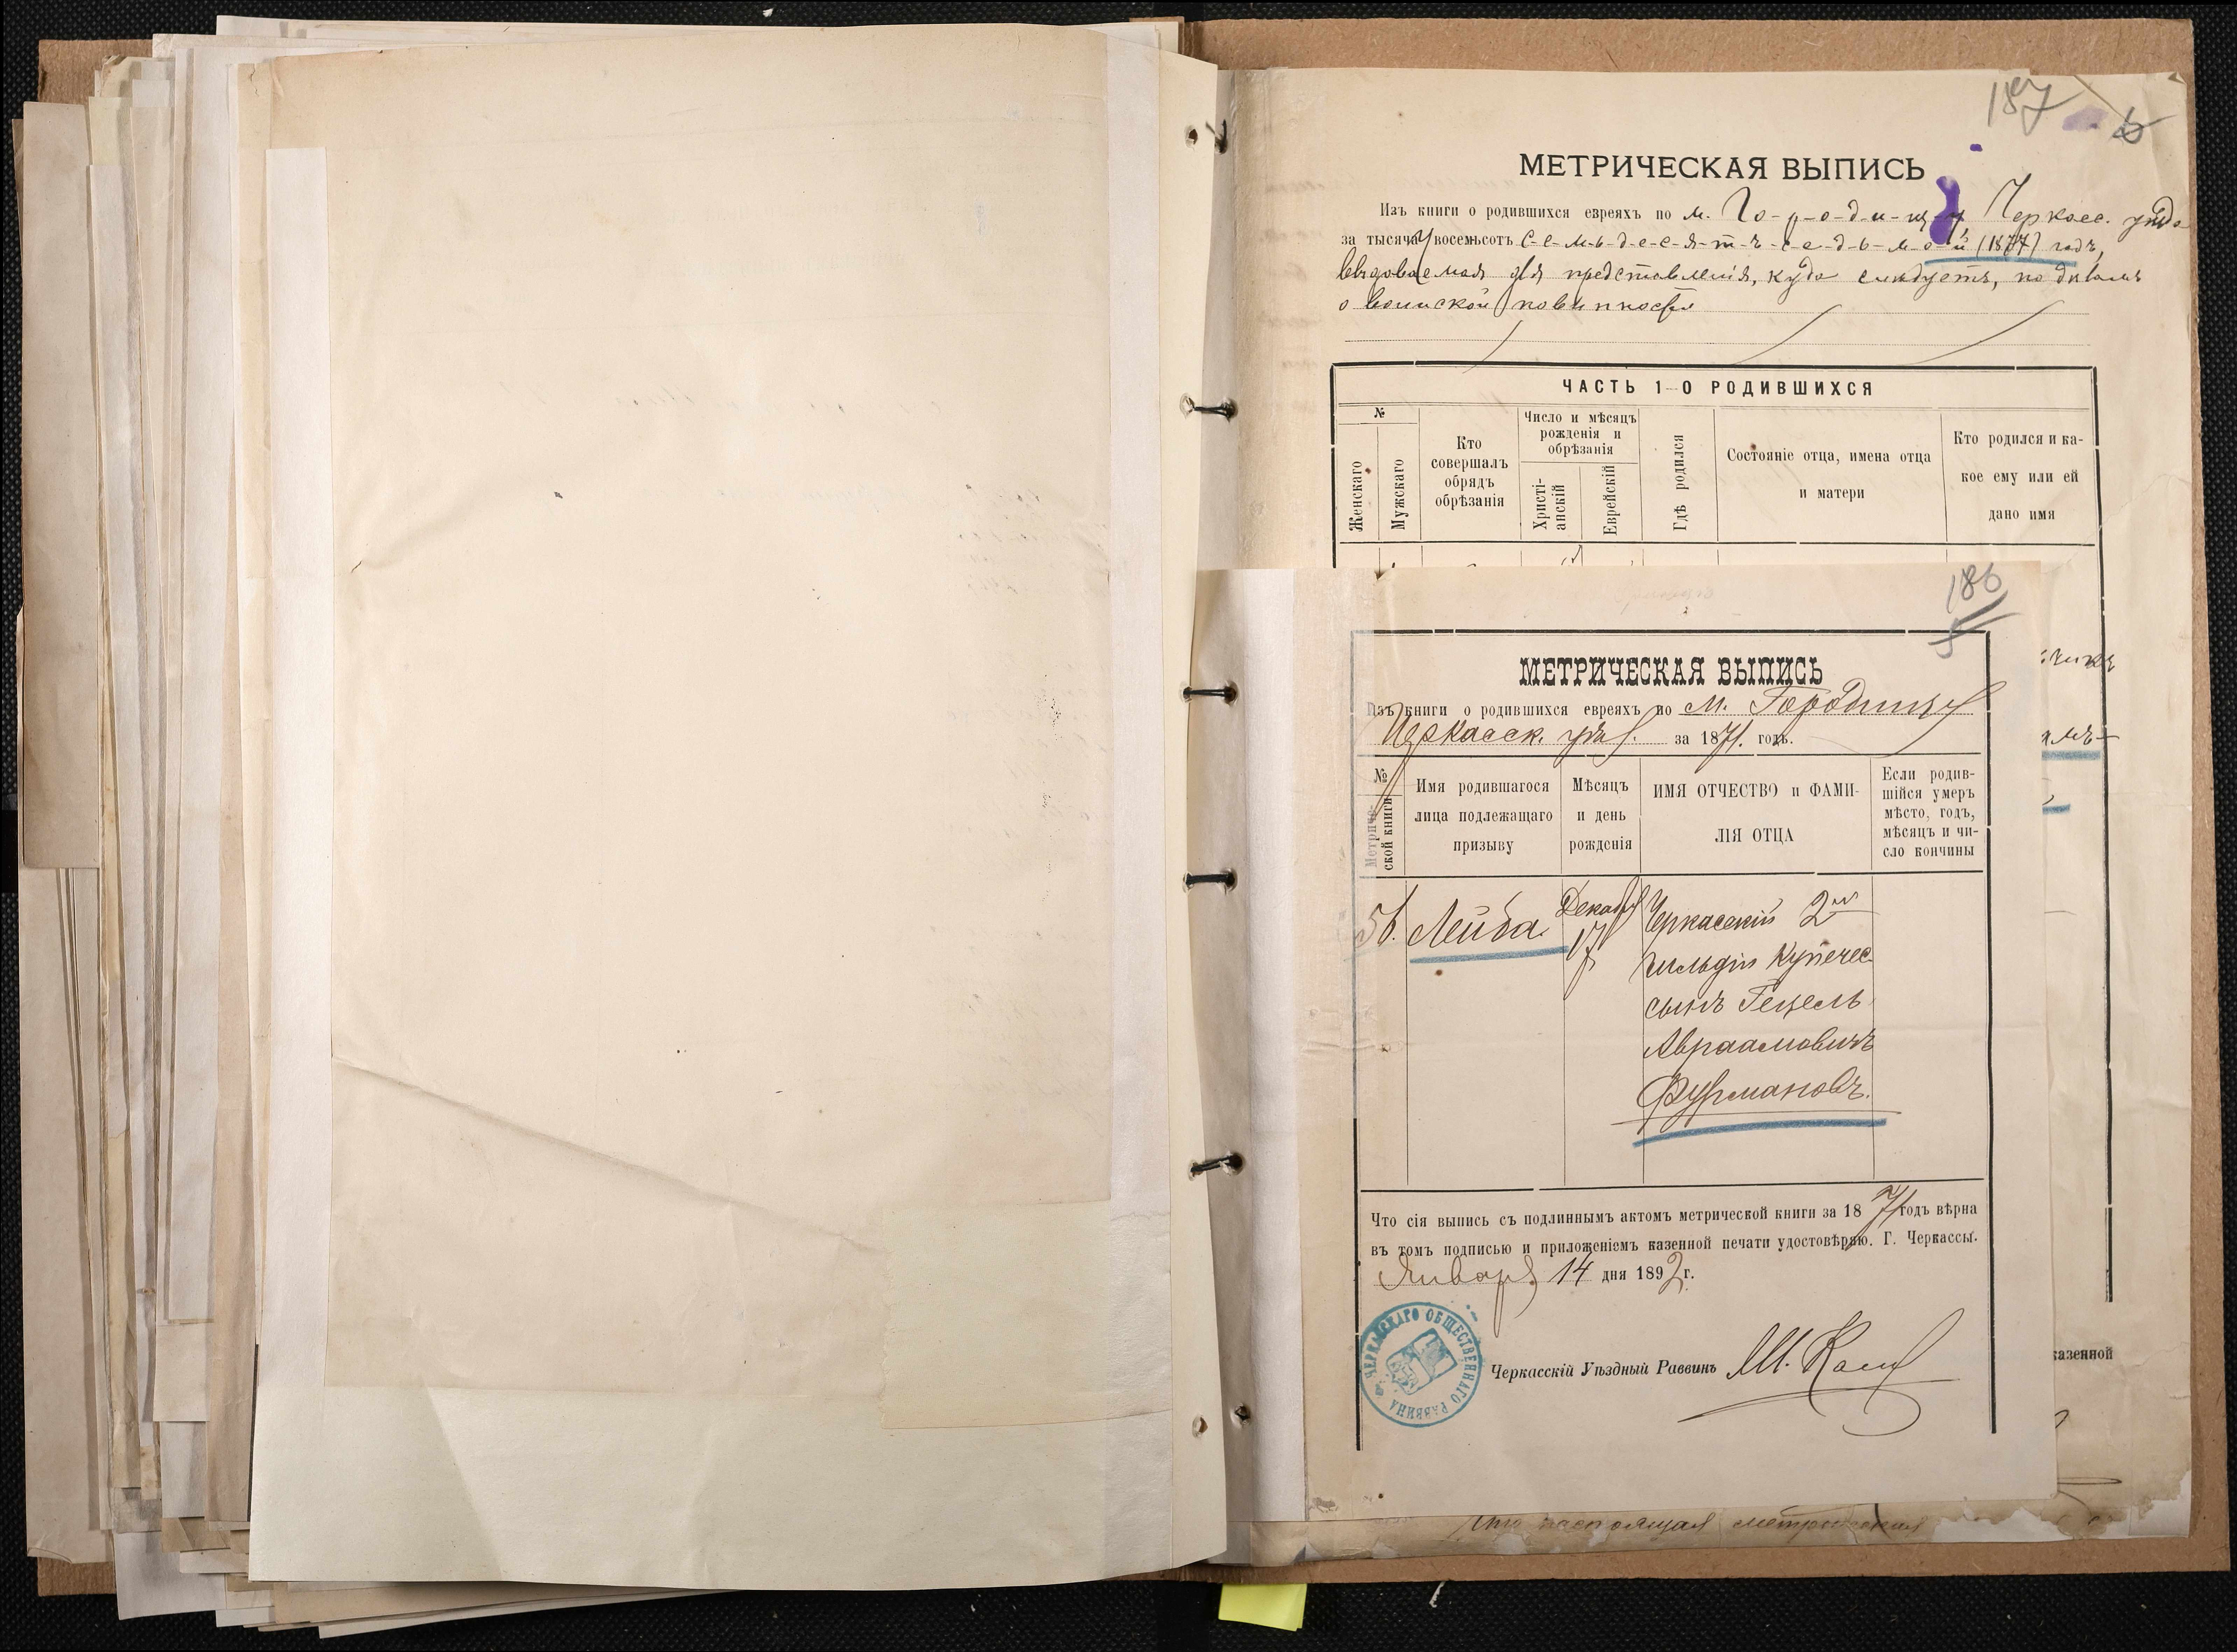 187
6
МЕТРИЧЕСКАЯ ВЫПИСЬ
Изъ книги о родившихся евреяхъ по м. Го-р-о-д-и-щ-у, Черкасс. уѣзда
за тысяча восемьсотъ с-е-м-ь-д-е-с-я-т-ъ-с-е-д-ь-м-о-й (1877) годъ,
выдаваемая для представленія, куда слѣдуетъ, по дѣламъ
о воинской повинности
ЧАСТЬ 1-О РОДИВШИХСЯ
№
Женскаго
Мужскаго
Кто
совершалъ
обрядъ
обрѣзанія
Число и мѣсяцъ
рожденія и
обрѣзанія
Христі-
анскій
Еврейскій
Гдѣ родился
Состояніе отца, имена отца
и матери
Кто родился и ка-
кое ему или ей
дано имя
186
5
МЕТРИЧЕСКАЯ ВЫПИСЬ
Изъ книги о родившихся евреяхъ по м. Городищу
Черкасск. уѣз. за 1871. годъ.
№
Метриче-
ской книги
Имя родившагося
лица подлежащаго
призыву
Мѣсяцъ
и день
рожденія
ИМЯ ОТЧЕСТВО и ФАМИ-
ЛІЯ ОТЦА
Если родив-
шійся умеръ
мѣсто, годъ,
мѣсяцъ и чи-
сло кончины
56. Лейба
Декабр
17
Черкасскій 2й
гильдіи купечес.
сынъ Гецель
Авраамовичъ
Фурмановъ.
Что сія выпись съ подлиннымъ актомъ метрической книги за 1871 годъ вѣрна
въ томъ подписью и приложеніемъ казенной печати удостовѣряю. Г. Черкассы.
Января 14 дня 1892 г.
ЧЕРКАССКАГО ОБЩЕСТВЕННАГО РАВВИНА
Черкасскій Уѣздный Раввинъ Ш.
казенной
Что настоящая метрическая